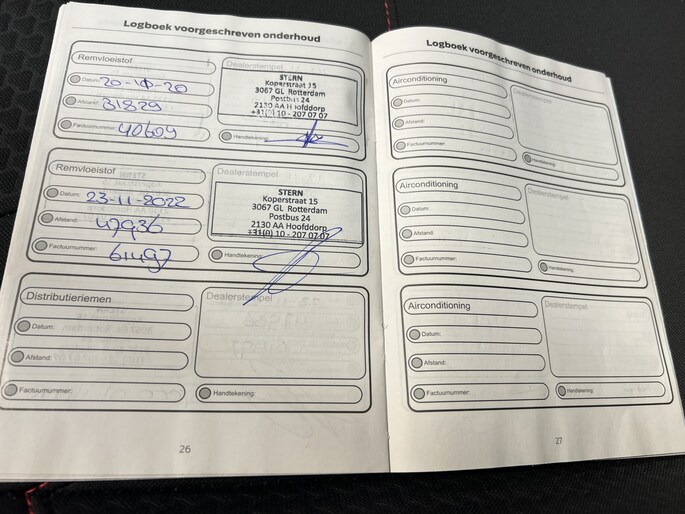 Logboek voorgeschreven onderhoud
Remvloeistof
Datum: 20-10-20
Afstand: 31829
Factuurnummer: 40609
Dealerstempel
STERN
Koperstraat 15
3067 GL Rotterdam
Postbus 24
2130 AA Hoofddorp
+31(0) 10 - 207 07 07
Handtekening:
Remvloeistof
Datum: 23-11-2022
Afstand: 47936
Factuurnummer: 61497
Dealerstempel
STERN
Koperstraat 15
3067 GL Rotterdam
Postbus 24
2130 AA Hoofddorp
+31(0) 10 - 207 07 07
Handtekening:
Distributieriemen
Datum:
Afstand:
Factuurnummer:
Dealerstempel
Handtekening:
26
Logboek voorgeschreven onderhoud
Airconditioning
Datum:
Afstand:
Factuurnummer:
Dealerstempel
Handtekening:
Airconditioning
Datum:
Afstand:
Factuurnummer:
Dealerstempel
Handtekening:
Airconditioning
Datum:
Afstand:
Factuurnummer:
Dealerstempel
Handtekening:
27